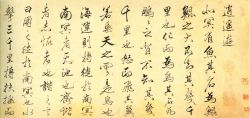 逍遙遊
北冥有魚其名為鯤
鯤之大不知其幾千
里也化而為鳥其名為
鵬鵬之背不知其幾
千里也怒而飛其翼
若垂天之雲是鳥也
海運則將徙於南冥
南冥者天池也齊諧
者志怪者也諧之言
曰鵬之徙於南冥也水
擊三千里摶扶搖而